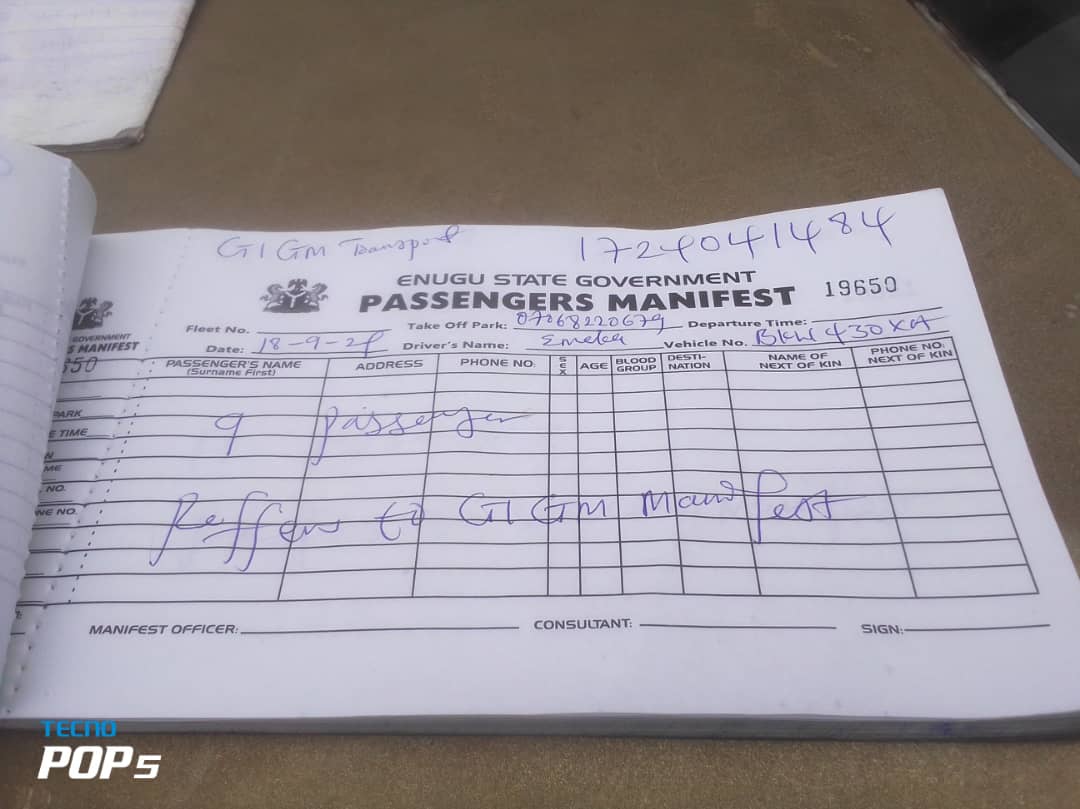 GIGM Transport 17240041484
ENUGU STATE GOVERNMENT
PASSENGERS MANIFEST 19650
Fleet No. Take Off Park: 07068220679 Departure Time:
Date: 18-9-24 Driver's Name: Emeka Vehicle No. BKW 430XA
PASSENGER'S NAME (Surname First) ADDRESS PHONE NO: SEX AGE BLOOD GROUP DESTI-NATION NAME OF NEXT OF KIN PHONE NO: NEXT OF KIN
9 passenger
Reffer to GIGM Manifest
MANIFEST OFFICER: CONSULTANT: SIGN:
GOVERNMENT
S MANIFEST
650
PARK
E TIME
N
ME
NO.
NE NO.
TECNO
POP 5